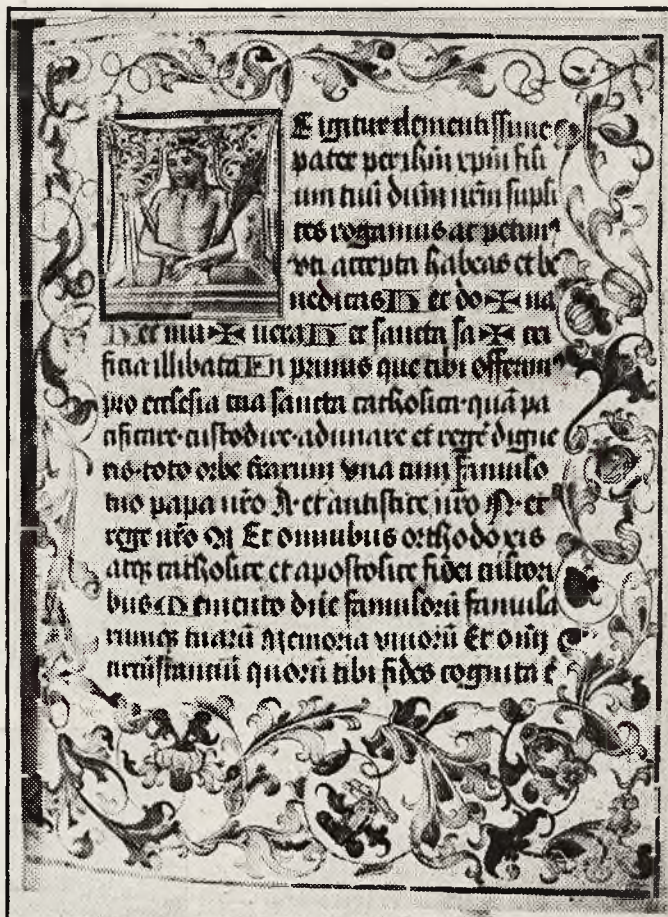 E igitur clementissime
pater per ihm xpm fili
um tuū dnm nrm supli
ces rogamus ac petimꝰ
vti accepta habeas et be
nedicas H et do ✠ na
H et mu ✠ nera H et sancta sa ✠ cri
ficia illibata In primis que tibi offerimꝰ
pro ecclesia tua sancta catholica·quā pa
cificare·custodire·adunare et regē digne
ris·toto orbe trarum vna cum famulo
tuo papa nrō N·et antistite nrō N·et
rege nrō N Et omnibus orthodoxis
atqꝫ catholice et apostolice fidei cultori
bus Memento dne famulorū famula
rumqꝫ tuarū Memoria viuorū Et omī
circūstantiū quorū tibi fides cognita ē